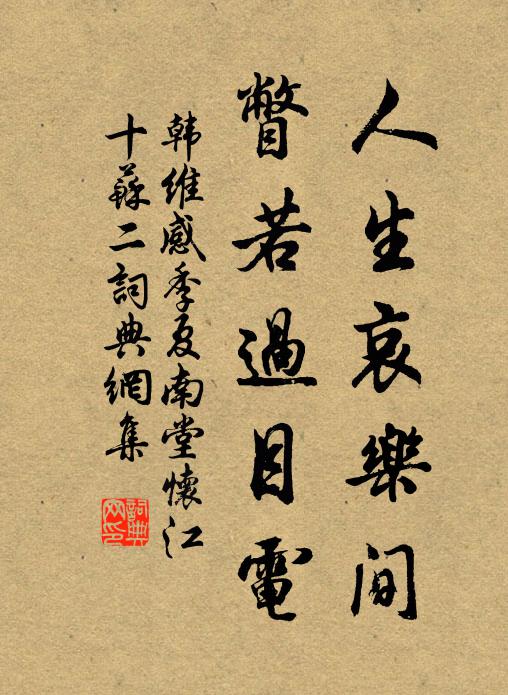 人生哀樂间
瞥若過目電
韩維感季夏南堂懷江
十蘇二詞典網集
詞典网印